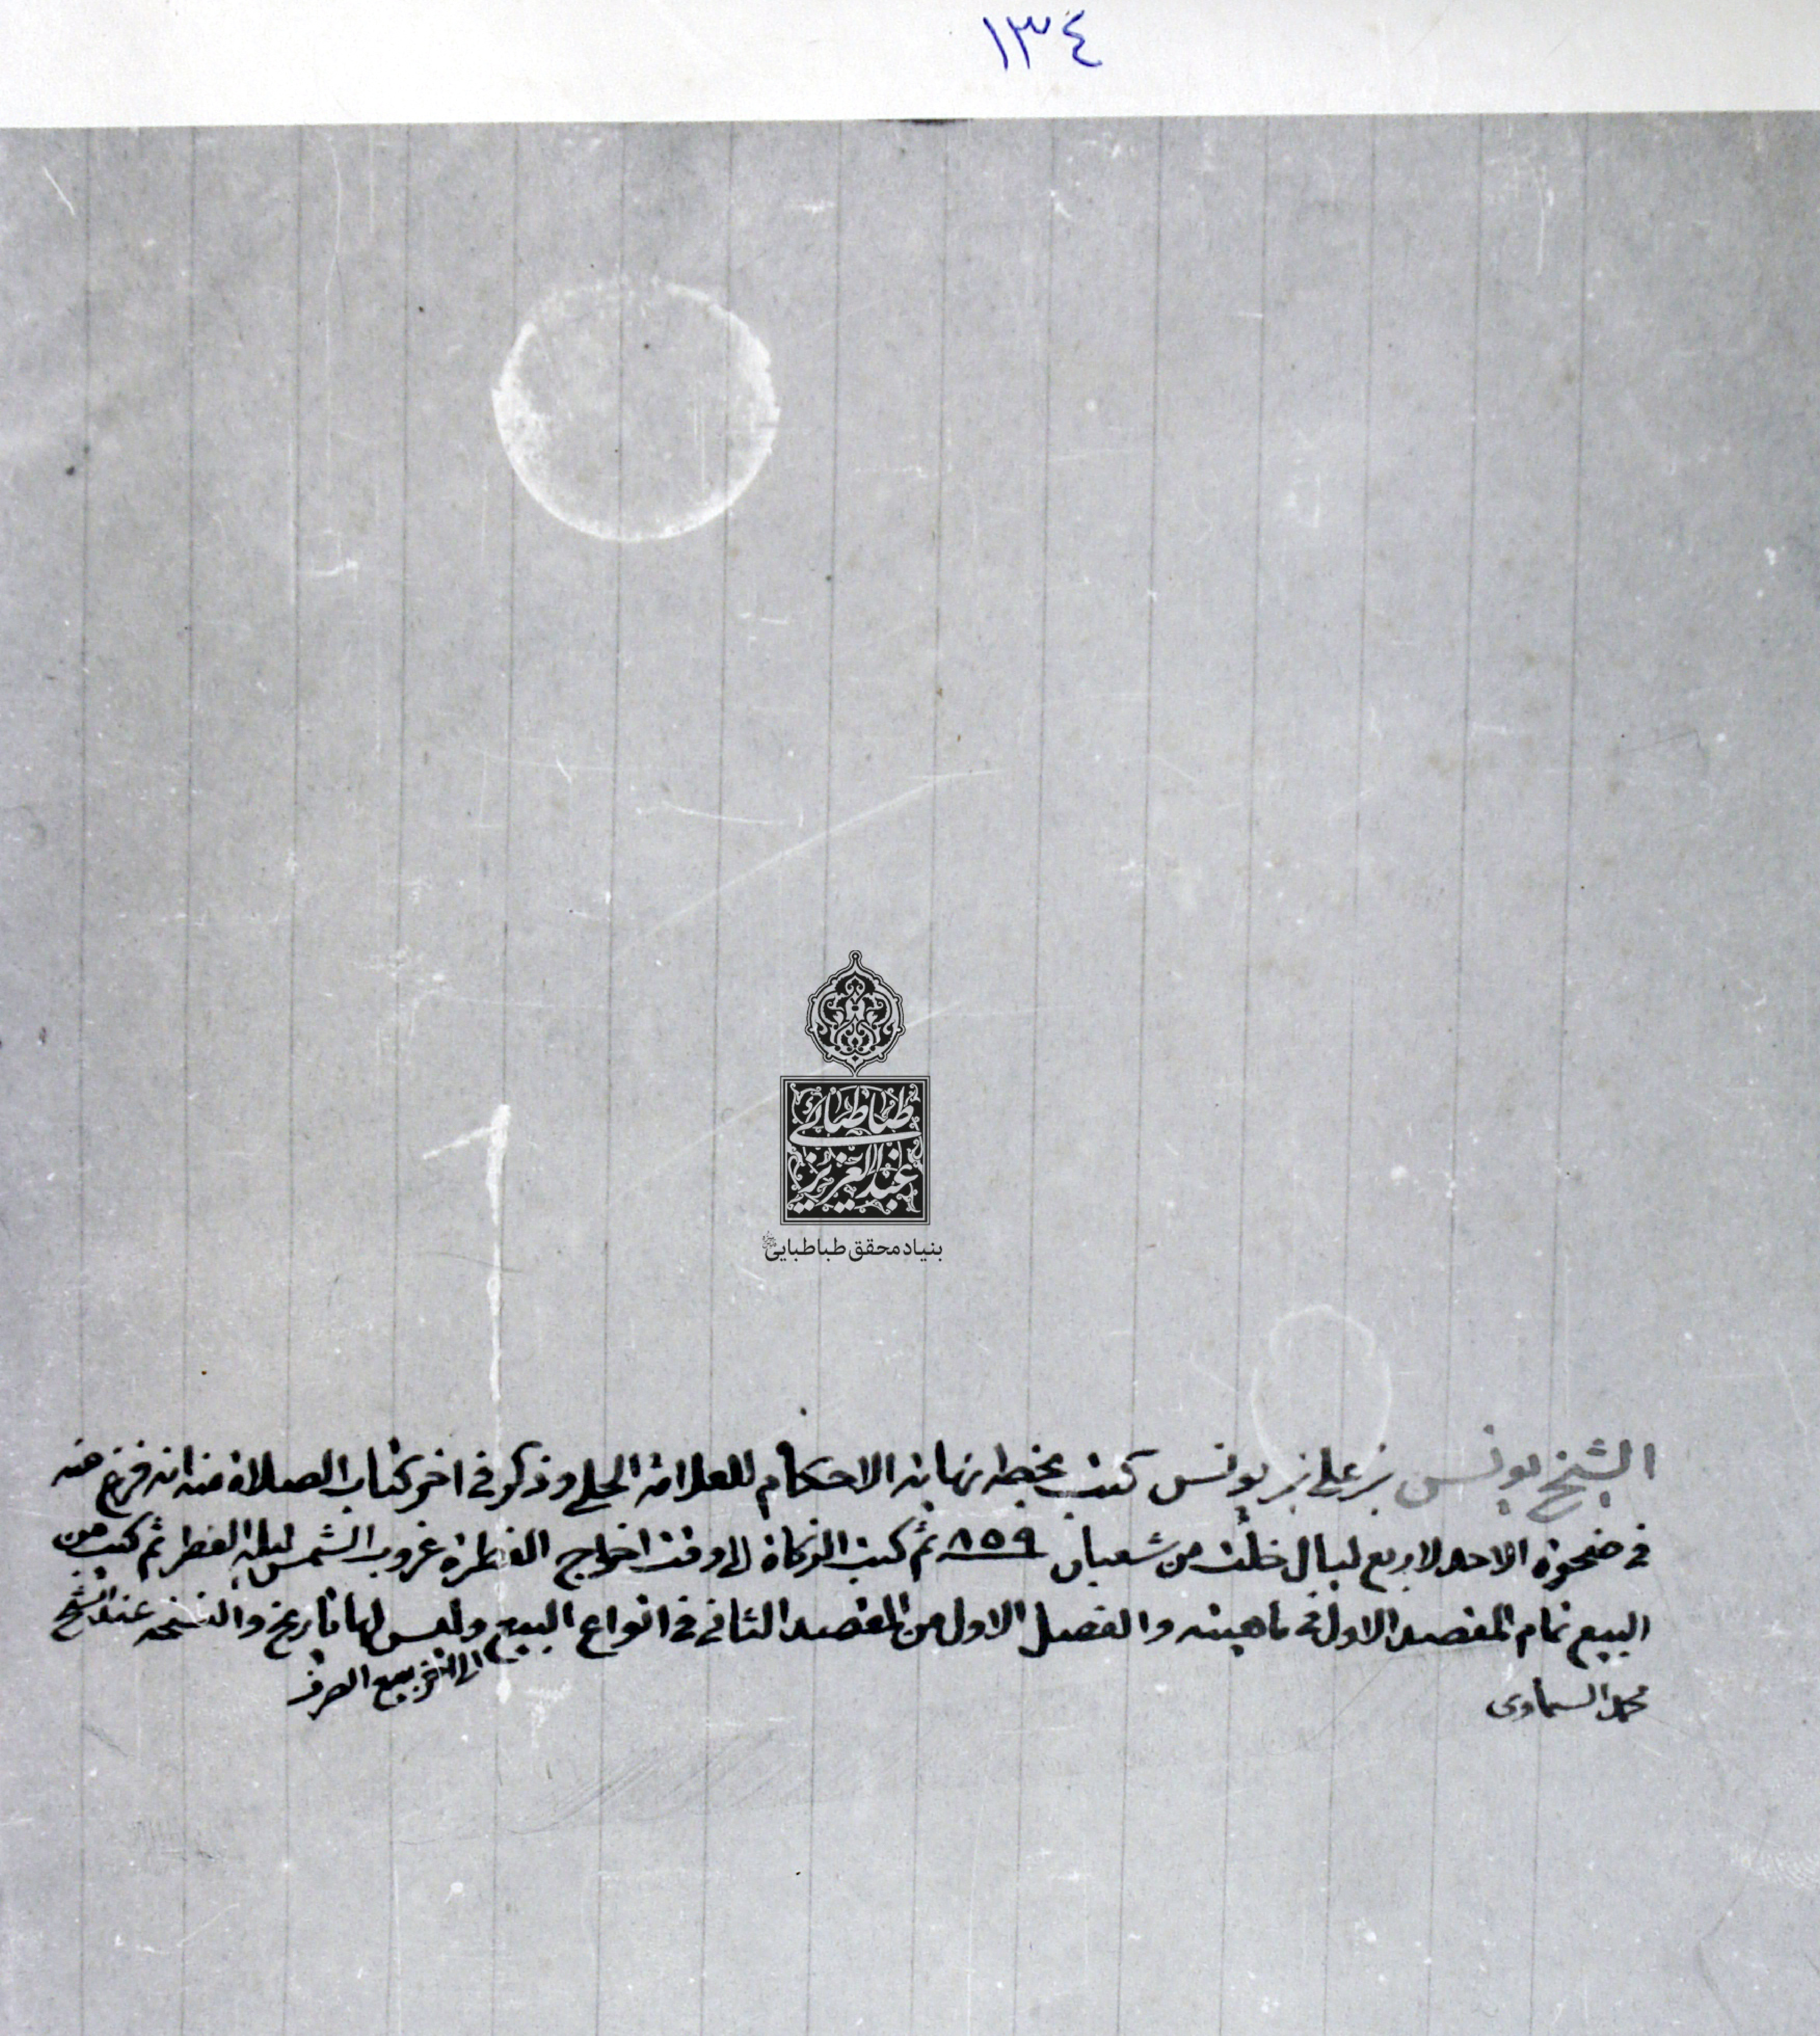 ١٣٤
طباطبائي
عبد العزيز
بنیاد محقق طباطبایی
الشيخ يونس بن علي بن يونس كتب بخطه نهاية الاحكام للعلامة الحلي وذكر في اخر كتاب الصلاة منه انه فرغ منه
في ضحوة الاحد لاربع ليال خلت من شعبان ٨٥٩ ثم كتب الزكاة الى وقت اخراج الفطرة غروب الشمس ليلة الفطر ثم كتب من
البيع تمام المقصد الاول في ماهيته والفصل الاول من المقصد الثاني في انواع البيع وليس لها تاريخ والنسخة عند الشيخ
الى اخر بيع الصرف
محمد السماوى